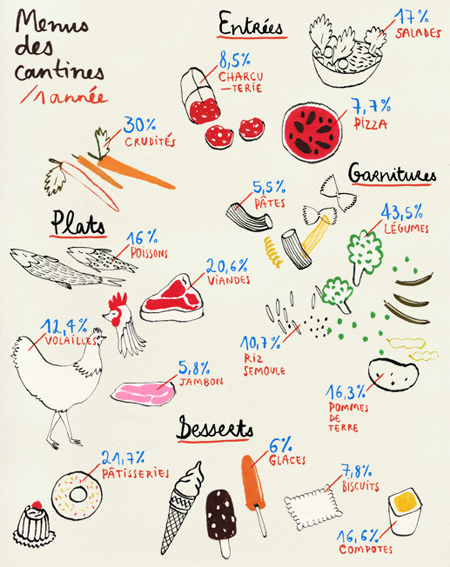 Menus
des
cantines
/1 année
Entrées
17%
SALADES
8,5%
CHARCU
-TERIE
7,7%
PIZZA
30%
CRUDITÉS
Garnitures
5,5%
PÂTES
43,5%
LÉGUMES
10,7%
RIZ
SEMOULE
16,3%
POMMES
DE
TERRE
Plats
16%
POISSONS
20,6%
VIANDES
12,4%
VOLAILLES
5,8%
JAMBON
Desserts
21,7%
PÂTISSERIES
6%
GLACES
7,8%
BISCUITS
16,6%
COMPOTES